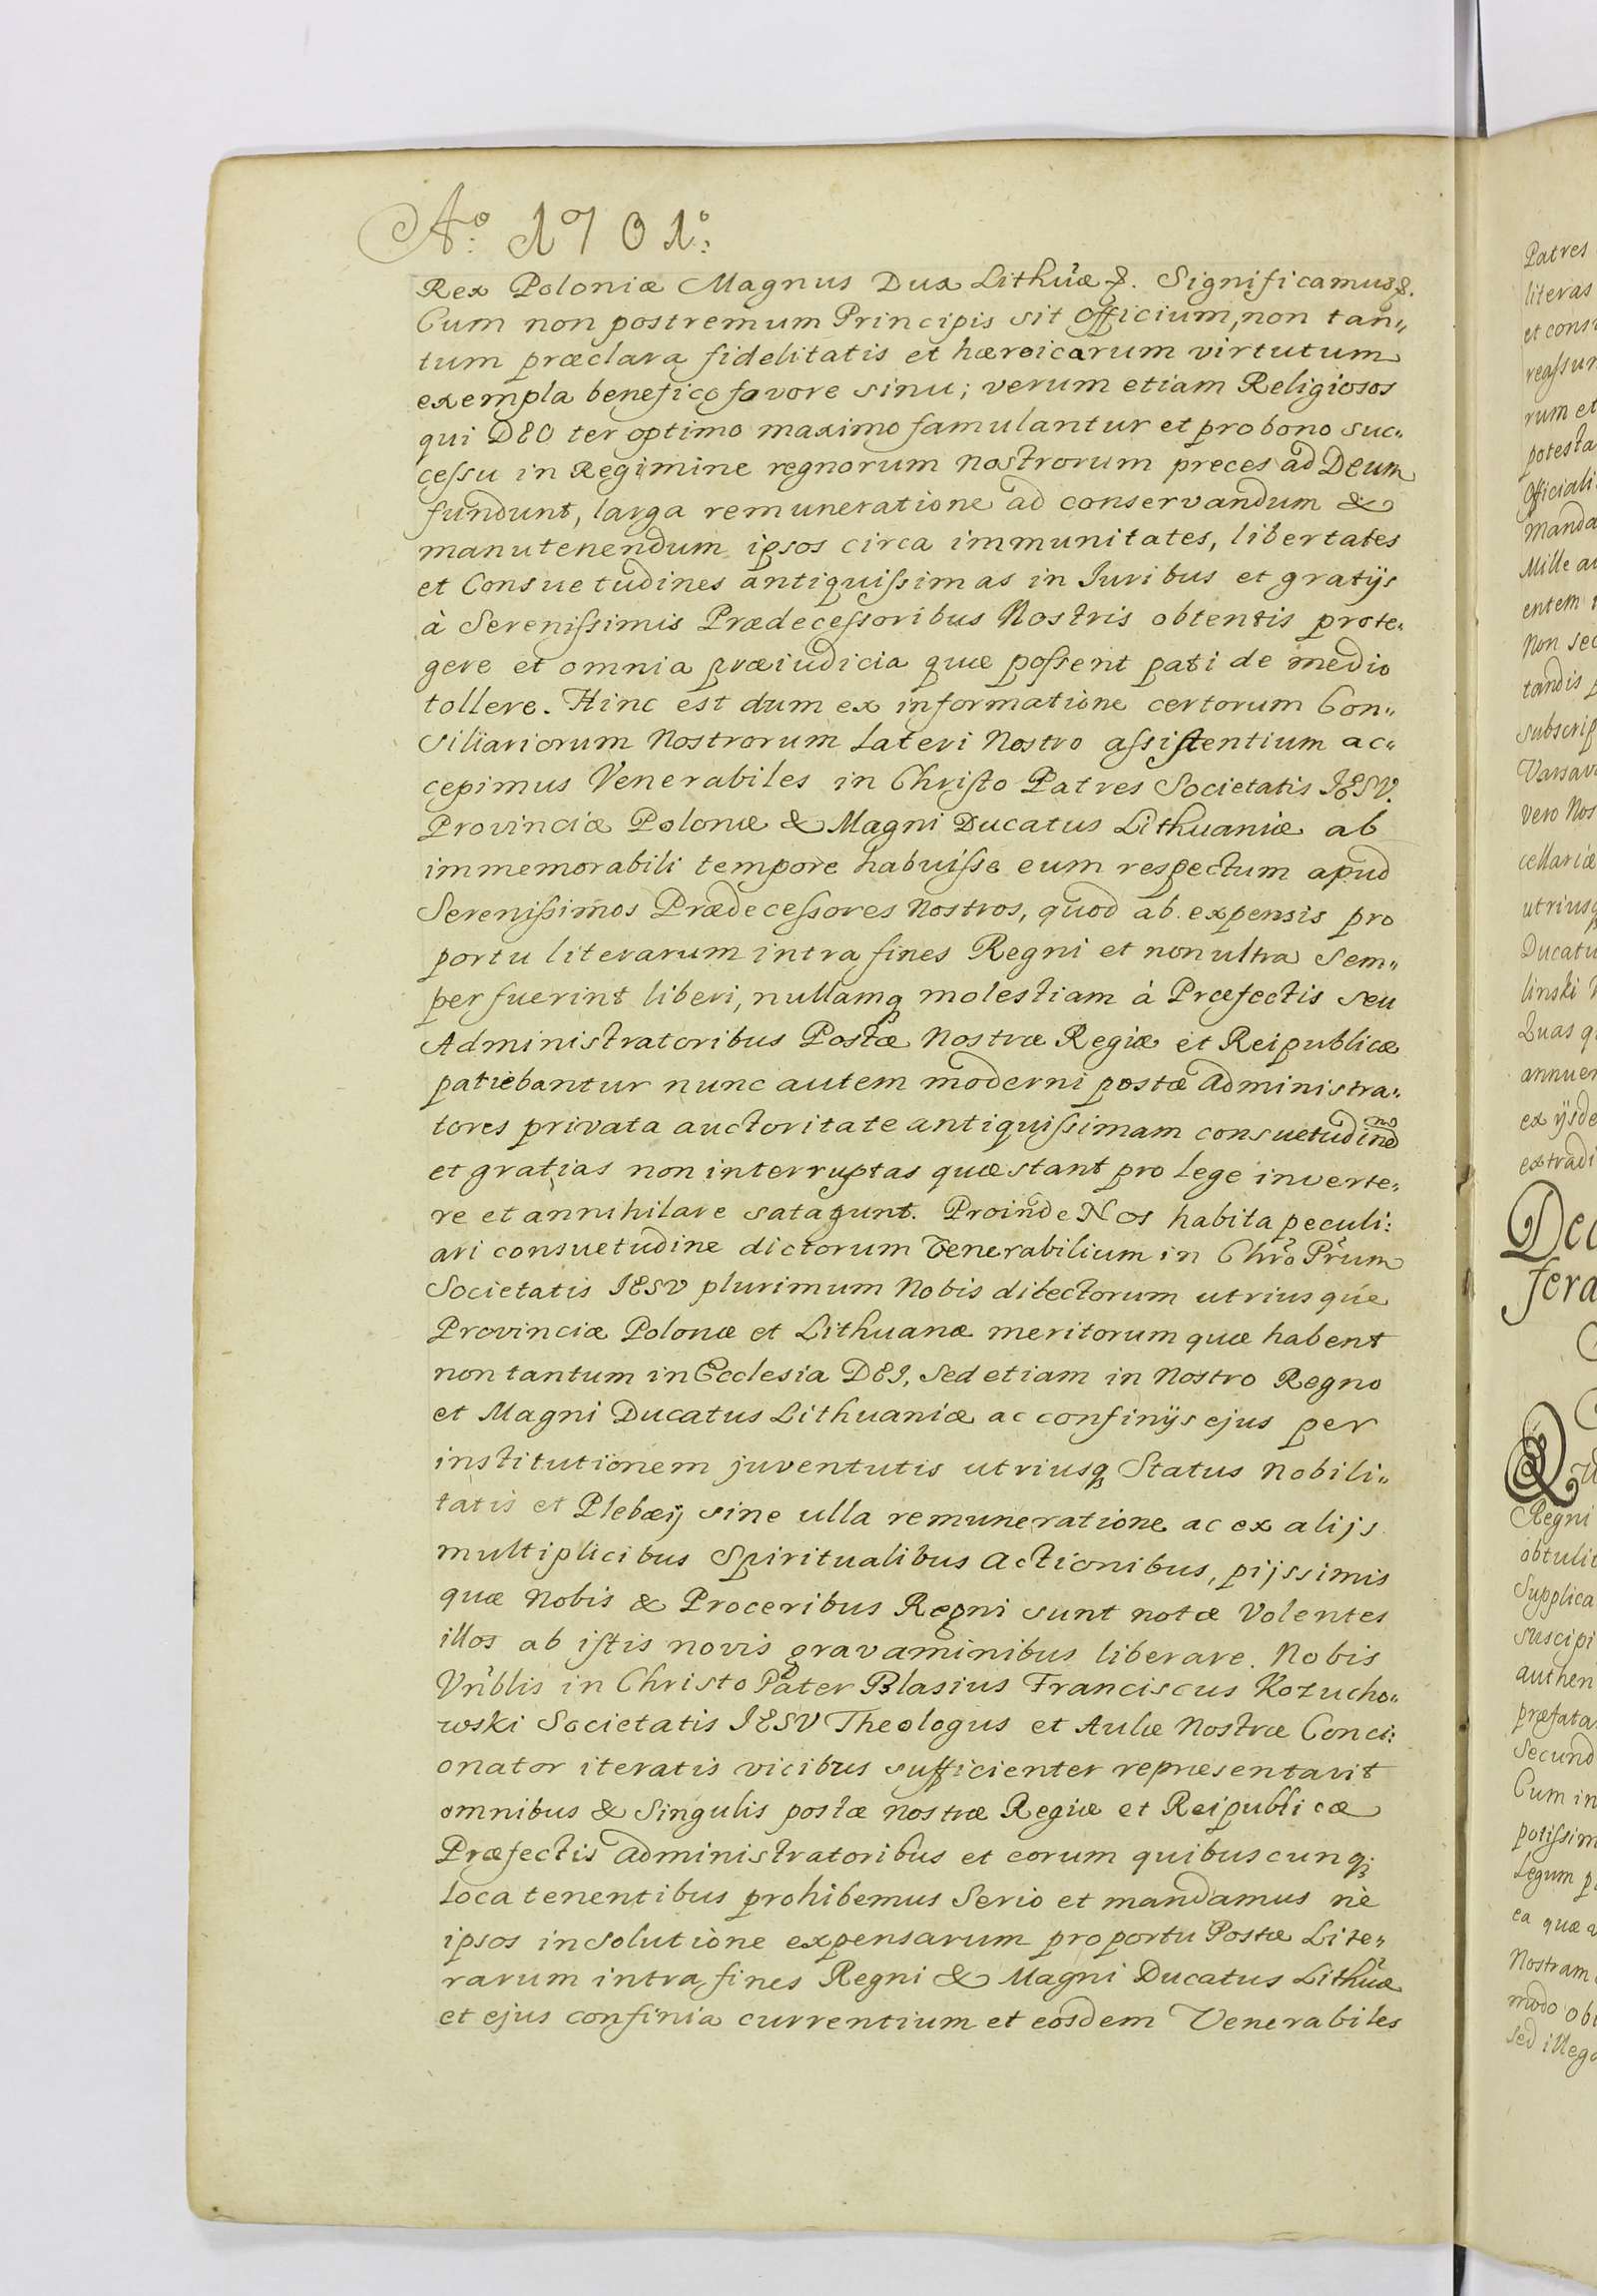 Aº: 1701º:
Rex Poloniæ Magnus Dux Lithũæ &. Significamus &.
Cum non postremum Principis sit officium, non tan„
tum præclara fidelitatis et hæroicarum virtutum
exempla benefico favore sinu; verum etiam Religiosos
qui DEO ter optimo maximo famulantur et pro bono suc„
cessu in Regimine regnorum nostrorum preces ad Deum
fundunt, larga remuneratione ad conservandum &
manutenendum ipsos circa immunitates, libertates
et Consuetudines antiquissimas in Iuribus et gratijs
à Serenissimis Prædecessoribus Nostris obtentis prote„
gere et omnia præiudicia quæ possent pati de medio
tollere. Hinc est dum ex informatione certorum Con„
siliariorum Nostrorum Lateri Nostro assistentium ac„
cepimus Venerabiles in Christo Patres Societatis IESV.
Provinciæ Polonæ & Magni Ducatus Lithuaniæ ab
immemorabili tempore habuisse eum respectum apud
Serenissimos Prædecessores Nostros, quod ab expensis pro
portu literarum intra fines Regni et non ultra sem„
per fuerint liberi, nullamq; molestiam à Præfectis seu
Administratoribus Postæ Nostræ Regiæ et Reipublicæ
patiebantur nunc autem moderni postæ administra„
tores privata auctoritate antiquissimam consuetudine͠
et gratias non interruptas quæ stant pro lege inverte„
re et annihilare satagunt. Proinde Nos habita peculi:
ari consuetudine dictorum Venerabilium in Chrõ Pr̃um
Societatis IESV plurimum Nobis dilectorum utriusque
Provinciæ Polonæ et Lithuanæ meritorum quæ habent
non tantum in Ecclesia DEI, sed etiam in Nostro Regno
et Magni Ducatus Lithuaniæ ac confinijs ejus per
institutionem juventutis utriusq; Status nobili„
tatis et Plebæij sine ulla remuneratione ac ex alijs
multiplicibus Spiritualibus actionibus, pijssimis
quæ Nobis & Proceribus Regni sunt notæ Volentes
illos ab istis novis gravaminibus liberare. Nobis
Vñblis in Christo Pater Blasius Franciscus Kozucho„
wski Societatis IESV Theologus et Aulæ Nostræ Conci:
onator iteratis vicibus sufficienter repræsentavit
omnibus & singulis postæ nostræ Regiæ et Reipublicæ
Præfectis administratoribus et eorum quibuscunq;
loca tenentibus prohibemus serio et mandamus nè
ipsos in solutione expensarum pro portu Postæ Lite„
rarum intra fines Regni & Magni Ducatus Lithũæ
et ejus confinia currentium et eosdem Venerabiles
Patres
literas
rum et
Mille
entem
non
tandis
cellariæ
Ducatu
linski
Quas
Regni
Supplica
suscipi
authen
præfata
secund
Cum in
Legum
ea quæ
Nostram
modo